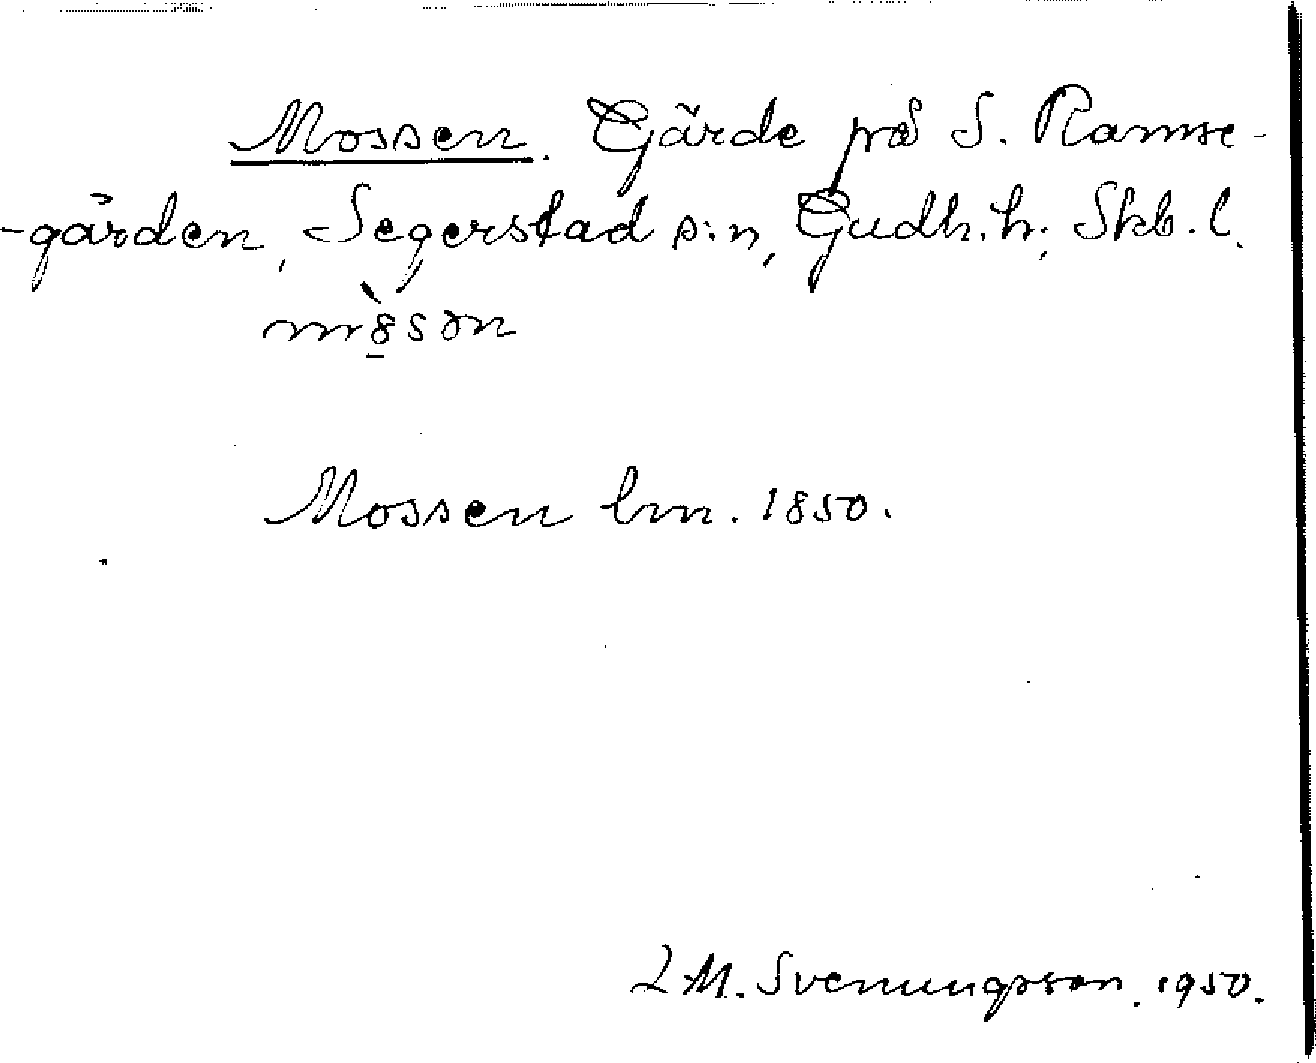 Mossen. Gärde på S. Ramse-
-gården, Segerstad s:n, Gudh. h., Skb. l.
mò̱sən
Mossen lm. 1850.
L M. Svenungsson. 1950.